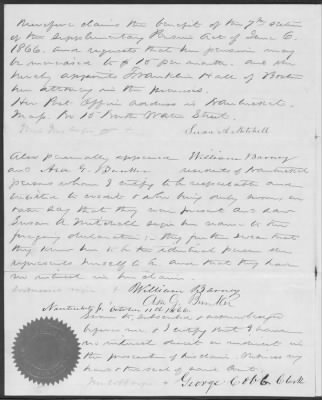 therefore claims the benefit of the 7th section
of the Supplementary Pension Act of June 6.
1866. and requests that her pension may
be increased to $ 10 per month. and she
hereby appoints Franklin Hall of Boston
her attorney in the premises.
Her Post Office address is Nantucket.
Mass. No 10 North Water Street.
Susan A. Mitchell
Also personally appeared William Barney
and Asa G. Bunker residents of Nantucket
persons whom I certify to be respectable and
entitled to credit & who being duly sworn on
oath say that they were present and saw
Susan A. Mitchell sign her name to the
foregoing declaration; they further swear that
they know her to be the identical person she
represents herself to be and that they have
no interest in her claim.
William Barney
Asa G. Bunker
Nantucket, ss. October 11th 1866.
Sworn & subscribed & acknowledged
before me & I certify that I have
no interest direct or indirect in
the prosecution of his claim. Witness my
hand & the seal of said Court.
George Cobb Clerk